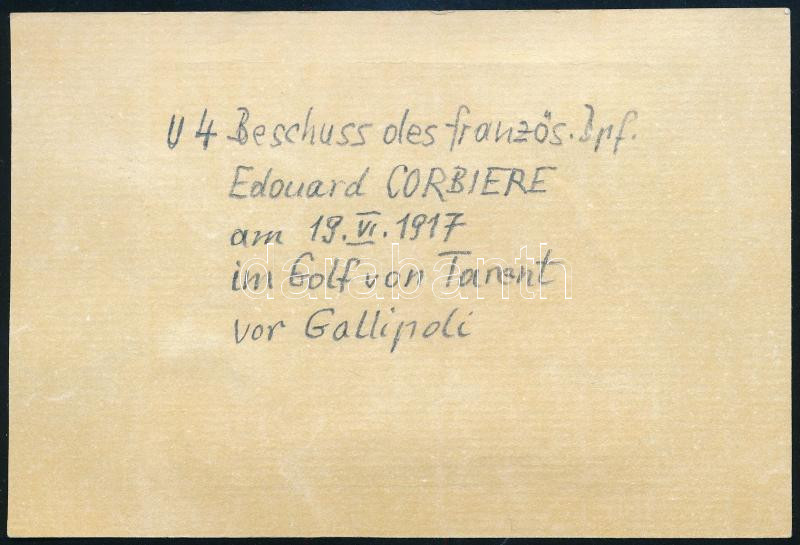 U 4 Beschuss des französ. Dpf.
Edouard CORBIERE
am 19. VI. 1917
im Golf von Tarent
darabanth
vor Gallipoli